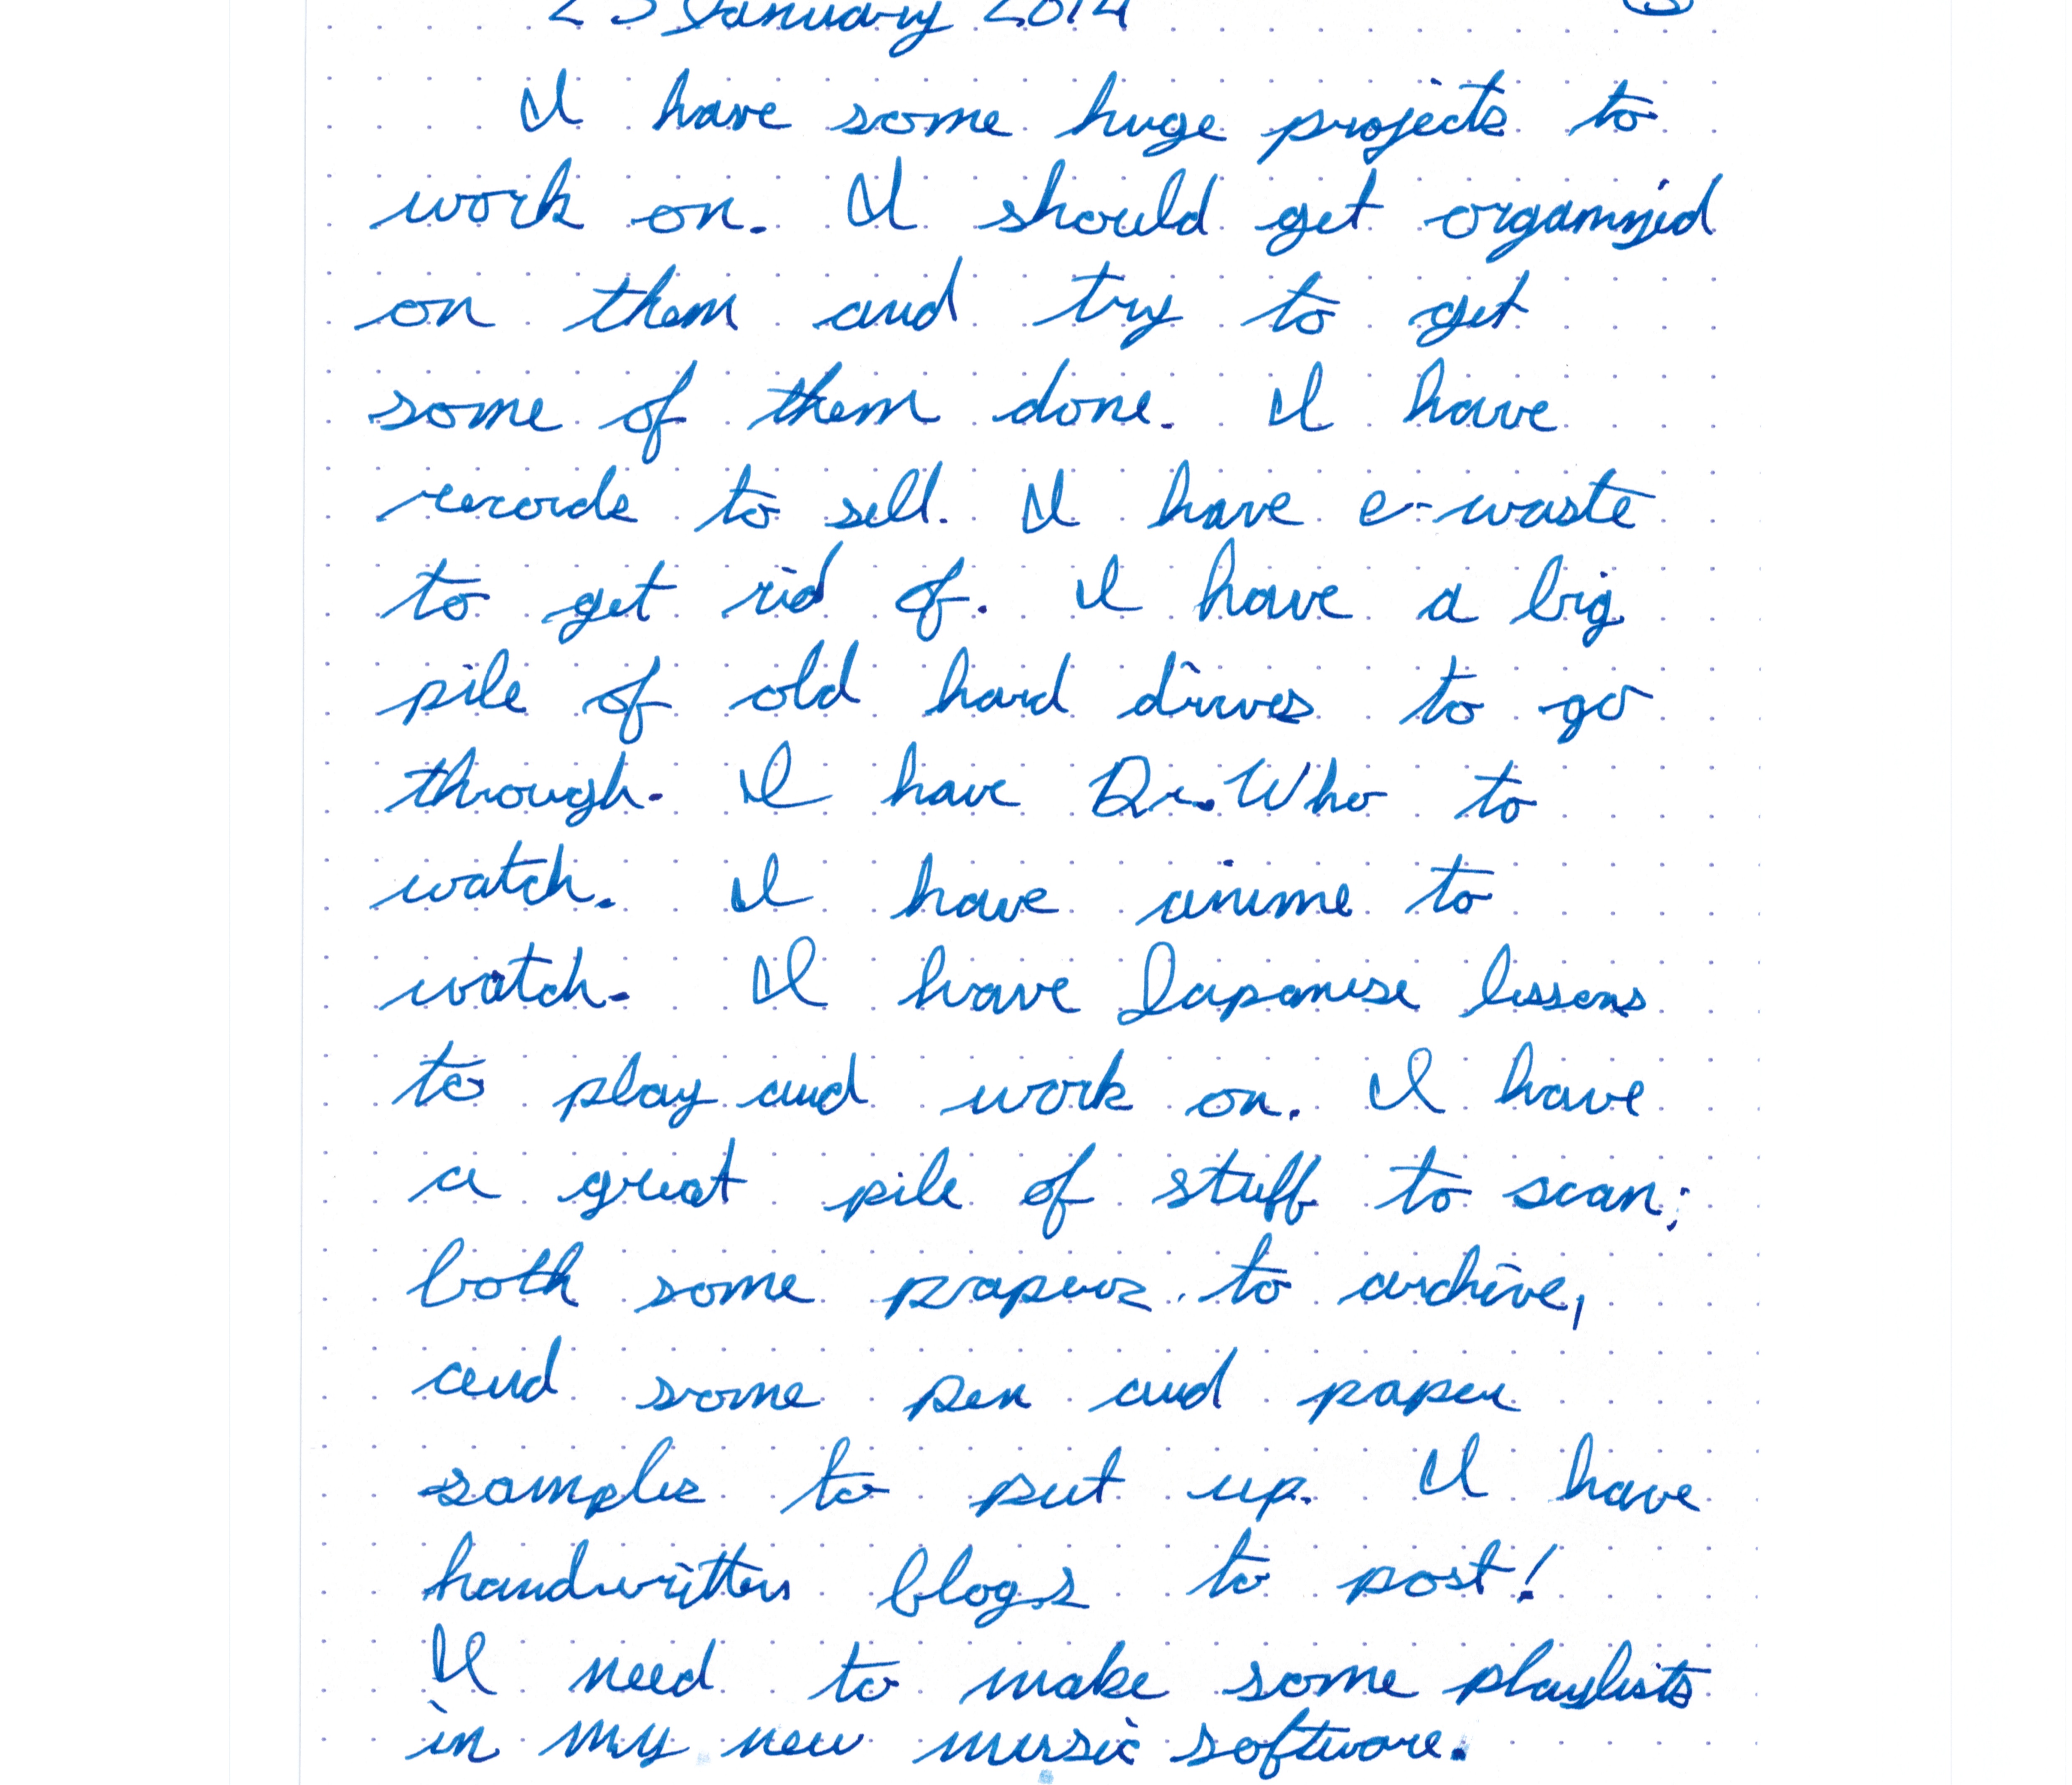 23 January 2014 3
I have some huge projects to
work on. I should get organized
on them and try to get
some of them done. I have
records to sell. I have e-waste
to get rid of. I have a big
pile of old hard drives to go
through. I have Dr. Who to
watch. I have anime to
watch. I have Japanese lessons
to play and work on. I have
a great pile of stuff to scan;
both some papers to archive,
and some pen and paper
samples to put up. I have
handwritten blogs to post!
I need to make some playlists
in my new music software.